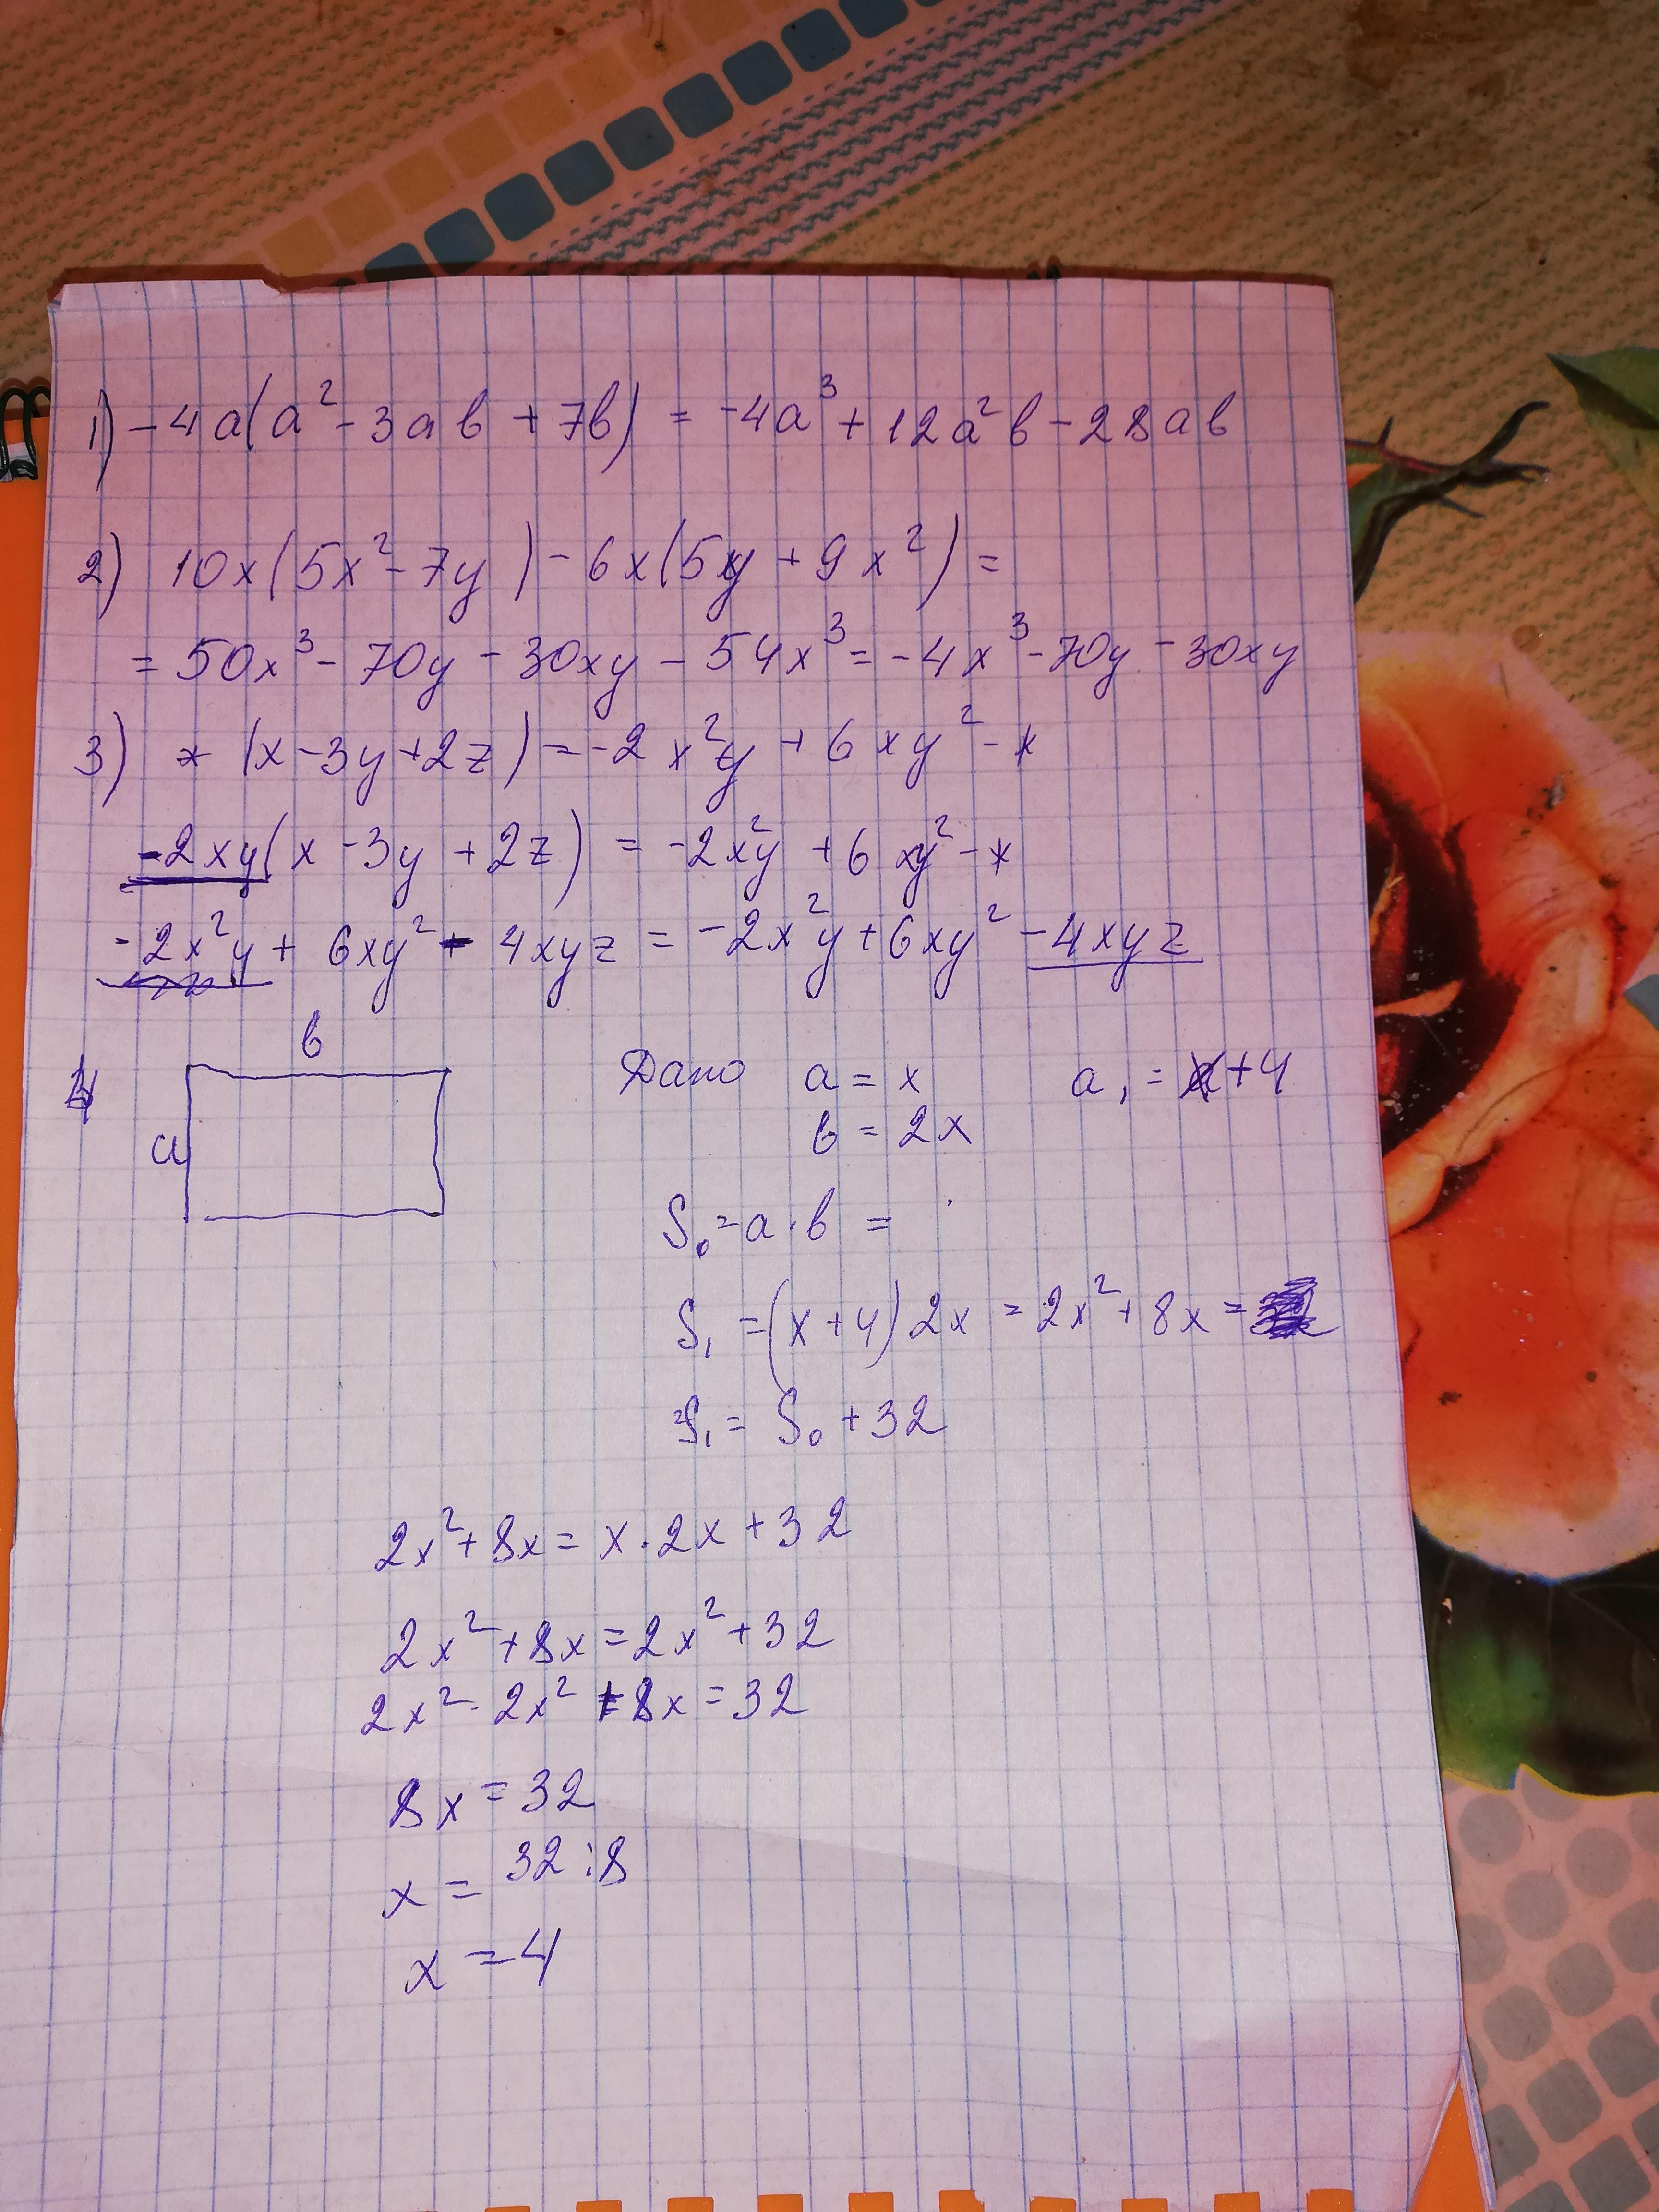 1) -4a(a² - 3ab + 7b) = -4a³ + 12a²b - 28ab
2) 10x(5x² - 7y) - 6x(5xy + 9x²) =
= 50x³ - 70y - 30xy - 54x³ = -4x³ - 70y - 30xy
3) * (x - 3y + 2z) = -2x²y + 6xy² - *
-2xy(x - 3y + 2z) = -2x²y + 6xy² - *
-2x²y + 6xy² - 4xyz = -2x²y + 6xy² - 4xyz
в
4
а
Дано a = x a₁ = x + 4
в = 2x
S₀ = a · в =
S₁ = (x + 4) 2x = 2x² + 8x =
S₁ = S₀ + 32
2x² + 8x = x · 2x + 32
2x² + 8x = 2x² + 32
2x² - 2x² + 8x = 32
8x = 32
x = 32 : 8
x = 4